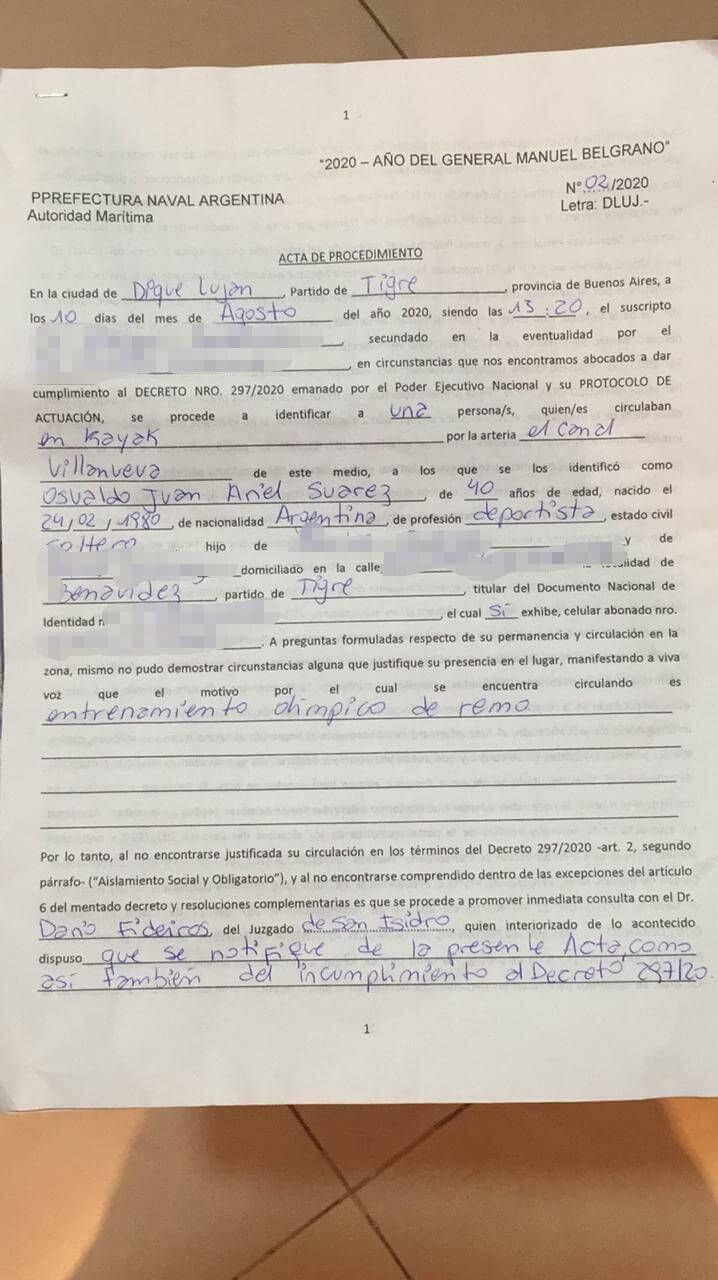 1
"2020 – AÑO DEL GENERAL MANUEL BELGRANO"
PPREFECTURA NAVAL ARGENTINA
Autoridad Marítima
N° 02/2020
Letra: DLUJ.-
ACTA DE PROCEDIMIENTO
En la ciudad de Dique Lujan, Partido de Tigre, provincia de Buenos Aires, a
los 10 días del mes de Agosto del año 2020, siendo las 13:20, el suscripto
, secundado en la eventualidad por el
, en circunstancias que nos encontramos abocados a dar
cumplimiento al DECRETO NRO. 297/2020 emanado por el Poder Ejecutivo Nacional y su PROTOCOLO DE
ACTUACIÓN, se procede a identificar a una persona/s, quien/es circulaban
en Kayak por la arteria el canal
Villanueva de este medio, a los que se los identificó como
Osvaldo Juan Ariel Suarez, de 40 años de edad, nacido el
24/02/1980, de nacionalidad Argentina, de profesión deportista, estado civil
soltero hijo de y de
domiciliado en la calle localidad de
Benavidez, partido de Tigre, titular del Documento Nacional de
Identidad , el cual Si exhibe, celular abonado nro.
. A preguntas formuladas respecto de su permanencia y circulación en la
zona, mismo no pudo demostrar circunstancias alguna que justifique su presencia en el lugar, manifestando a viva
voz que el motivo por el cual se encuentra circulando es
entrenamiento olimpico de remo
Por lo tanto, al no encontrarse justificada su circulación en los términos del Decreto 297/2020 -art. 2, segundo
párrafo- ("Aislamiento Social y Obligatorio"), y al no encontrarse comprendido dentro de las excepciones del artículo
6 del mentado decreto y resoluciones complementarias es que se procede a promover inmediata consulta con el Dr.
, del Juzgado de San Isidro, quien interiorizado de lo acontecido
dispuso que se notifique de la presente Acta, como
asi también del incumplimiento al Decreto 297/20.
1